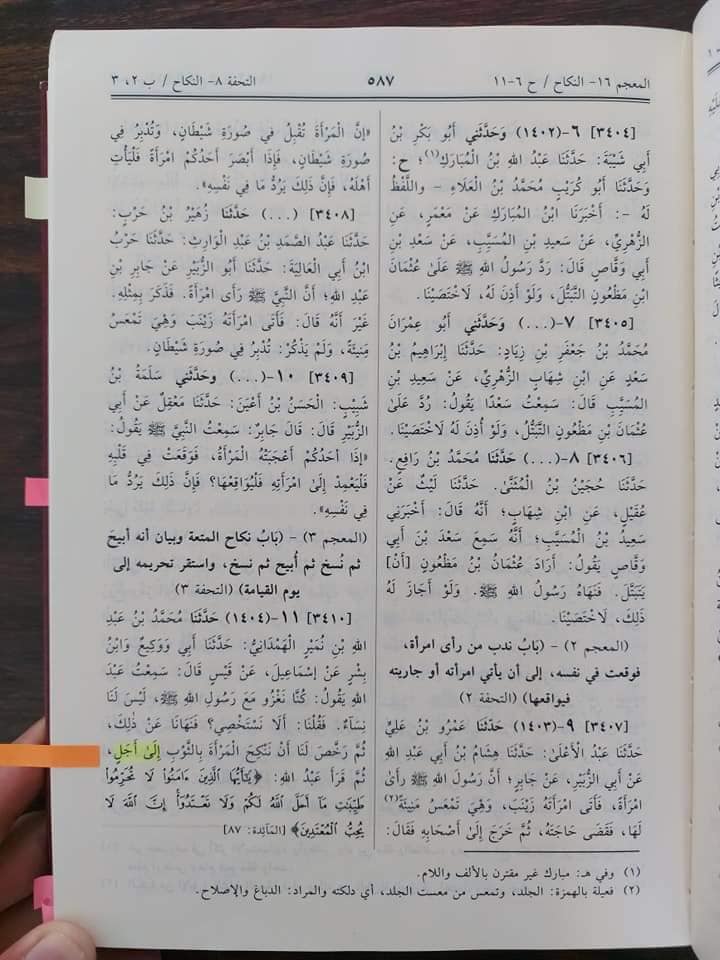 المعجم ١٦- النكاح / ح ٦-١١
٥٨٧
التحفة ٨- النكاح / ب ٢، ٣
[٣٤٠٤] ٦-(١٤٠٢) وَحَدَّثَنِي أَبُو بَكْرِ بْنُ
أَبِي شَيْبَةَ: حَدَّثَنَا عَبْدُ اللهِ بْنُ الْمُبَارَكِ(١)؛ ح:
وَحَدَّثَنَا أَبُو كُرَيْبٍ مُحَمَّدُ بْنُ الْعَلَاءِ - وَاللَّفْظُ
لَهُ -: أَخْبَرَنَا ابْنُ الْمُبَارَكِ عَنْ مَعْمَرٍ، عَنِ
الزُّهْرِيِّ، عَنْ سَعِيدِ بْنِ الْمُسَيَّبِ، عَنْ سَعْدِ بْنِ
أَبِي وَقَّاصٍ قَالَ: رَدَّ رَسُولُ اللهِ ﷺ عَلَىٰ عُثْمَانَ
ابْنِ مَظْعُونٍ التَّبَتُّلَ، وَلَوْ أَذِنَ لَهُ، لَاخْتَصَيْنَا.
[٣٤٠٥] ٧-(...) وَحَدَّثَنِي أَبُو عِمْرَانَ
مُحَمَّدُ بْنُ جَعْفَرِ بْنِ زِيَادٍ: حَدَّثَنَا إِبْرَاهِيمُ بْنُ
سَعْدٍ عَنِ ابْنِ شِهَابٍ الزُّهْرِيِّ، عَنْ سَعِيدِ بْنِ
الْمُسَيَّبِ قَالَ: سَمِعْتُ سَعْدًا يَقُولُ: رُدَّ عَلَىٰ
عُثْمَانَ بْنِ مَظْعُونٍ التَّبَتُّلُ، وَلَوْ أُذِنَ لَهُ لَاخْتَصَيْنَا.
[٣٤٠٦] ٨-(...) حَدَّثَنَا مُحَمَّدُ بْنُ رَافِعٍ.
حَدَّثَنَا حُجَيْنُ بْنُ الْمُثَنَّىٰ. حَدَّثَنَا لَيْثٌ عَنْ
عُقَيْلٍ، عَنِ ابْنِ شِهَابٍ؛ أَنَّهُ قَالَ: أَخْبَرَنِي
سَعِيدُ بْنُ الْمُسَيَّبِ؛ أَنَّهُ سَمِعَ سَعْدَ بْنَ أَبِي
وَقَّاصٍ يَقُولُ: أَرَادَ عُثْمَانُ بْنُ مَظْعُونٍ [أَنْ]
يَتَبَتَّلَ. فَنَهَاهُ رَسُولُ اللهِ ﷺ. وَلَوْ أَجَازَ لَهُ
ذَلِكَ، لَاخْتَصَيْنَا.
(المعجم ٢) - (بَابُ ندب من رأى امرأة،
فوقعت في نفسه، إلى أن يأتي امرأته أو جاريته
فيواقعها) (التحفة ٢)
[٣٤٠٧] ٩-(١٤٠٣) حَدَّثَنَا عَمْرُو بْنُ عَلِيٍّ
حَدَّثَنَا عَبْدُ الْأَعْلَىٰ: حَدَّثَنَا هِشَامُ بْنُ أَبِي عَبْدِ اللهِ
عَنْ أَبِي الزُّبَيْرِ، عَنْ جَابِرٍ؛ أَنَّ رَسُولَ اللهِ ﷺ رَأَىٰ
امْرَأَةً، فَأَتَى امْرَأَتَهُ زَيْنَبَ، وَهِيَ تَمْعَسُ مَنِيئَةً(٢)
لَهَا، فَقَضَى حَاجَتَهُ، ثُمَّ خَرَجَ إِلَىٰ أَصْحَابِهِ فَقَالَ:
«إِنَّ الْمَرْأَةَ تُقْبِلُ فِي صُورَةِ شَيْطَانٍ، وَتُدْبِرُ فِي
صُورَةِ شَيْطَانٍ، فَإِذَا أَبْصَرَ أَحَدُكُمْ امْرَأَةً فَلْيَأْتِ
أَهْلَهُ، فَإِنَّ ذَلِكَ يَرُدُّ مَا فِي نَفْسِهِ».
[٣٤٠٨] (...) حَدَّثَنَا زُهَيْرُ بْنُ حَرْبٍ:
حَدَّثَنَا عَبْدُ الصَّمَدِ بْنُ عَبْدِ الْوَارِثِ: حَدَّثَنَا حَرْبُ
ابْنُ أَبِي الْعَالِيَةِ: حَدَّثَنَا أَبُو الزُّبَيْرِ عَنْ جَابِرِ بْنِ
عَبْدِ اللهِ؛ أَنَّ النَّبِيَّ ﷺ رَأَى امْرَأَةً. فَذَكَرَ بِمِثْلِهِ.
غَيْرَ أَنَّهُ قَالَ: فَأَتَى امْرَأَتَهُ زَيْنَبَ وَهِيَ تَمْعَسُ
مَنِيئَةً، وَلَمْ يَذْكُرْ: تُدْبِرُ فِي صُورَةِ شَيْطَانٍ.
[٣٤٠٩] ١٠-(...) وحَدَّثَنِي سَلَمَةُ بْنُ
شَبِيبٍ: الْحَسَنُ بْنُ أَعْيَنَ: حَدَّثَنَا مَعْقِلٌ عَنْ أَبِي
الزُّبَيْرِ قَالَ: قَالَ جَابِرٌ: سَمِعْتُ النَّبِيَّ ﷺ يَقُولُ:
«إِذَا أَحَدُكُمْ أَعْجَبَتْهُ الْمَرْأَةُ، فَوَقَعَتْ فِي قَلْبِهِ
فَلْيَعْمِدْ إِلَىٰ امْرَأَتِهِ فَلْيُوَاقِعْهَا؟ فَإِنَّ ذَلِكَ يَرُدُّ مَا
فِي نَفْسِهِ».
(المعجم ٣) - (بَابُ نكاح المتعة وبيان أنه أبيح
ثم نُسخ ثم أُبيح ثم نسخ، واستقر تحريمه إلى
يوم القيامة) (التحفة ٣)
[٣٤١٠] ١١-(١٤٠٤) حَدَّثَنَا مُحَمَّدُ بْنُ عَبْدِ
اللهِ بْنِ نُمَيْرٍ الْهَمْدَانِيُّ: حَدَّثَنَا أَبِي وَوَكِيعٌ وَابْنُ
بِشْرٍ عَنْ إِسْمَاعِيلَ، عَنْ قَيْسٍ قَالَ: سَمِعْتُ عَبْدَ
اللهِ يَقُولُ: كُنَّا نَغْزُو مَعَ رَسُولِ اللهِ ﷺ، لَيْسَ لَنَا
نِسَاءٌ. فَقُلْنَا: أَلَا نَسْتَخْصِي؟ فَنَهَانَا عَنْ ذَلِكَ،
ثُمَّ رَخَّصَ لَنَا أَنْ نَنْكِحَ الْمَرْأَةَ بِالثَّوْبِ إِلَىٰ أَجَلٍ،
ثُمَّ قَرَأَ عَبْدُ اللهِ: ﴿يَٰٓأَيُّهَا ٱلَّذِينَ ءَامَنُوا۟ لَا تُحَرِّمُوا۟
طَيِّبَٰتِ مَآ أَحَلَّ ٱللَّهُ لَكُمْ وَلَا تَعْتَدُوٓا۟ إِنَّ ٱللَّهَ لَا
يُحِبُّ ٱلْمُعْتَدِينَ﴾ [المائدة: ٨٧]
(١) وفي هـ: مبارك غير مقترن بالألف واللام.
(٢) فعيلة بالهمزة: الجلد، وتمعس من معست الجلد، أي دلكته والمراد: الدباغ والإصلاح.